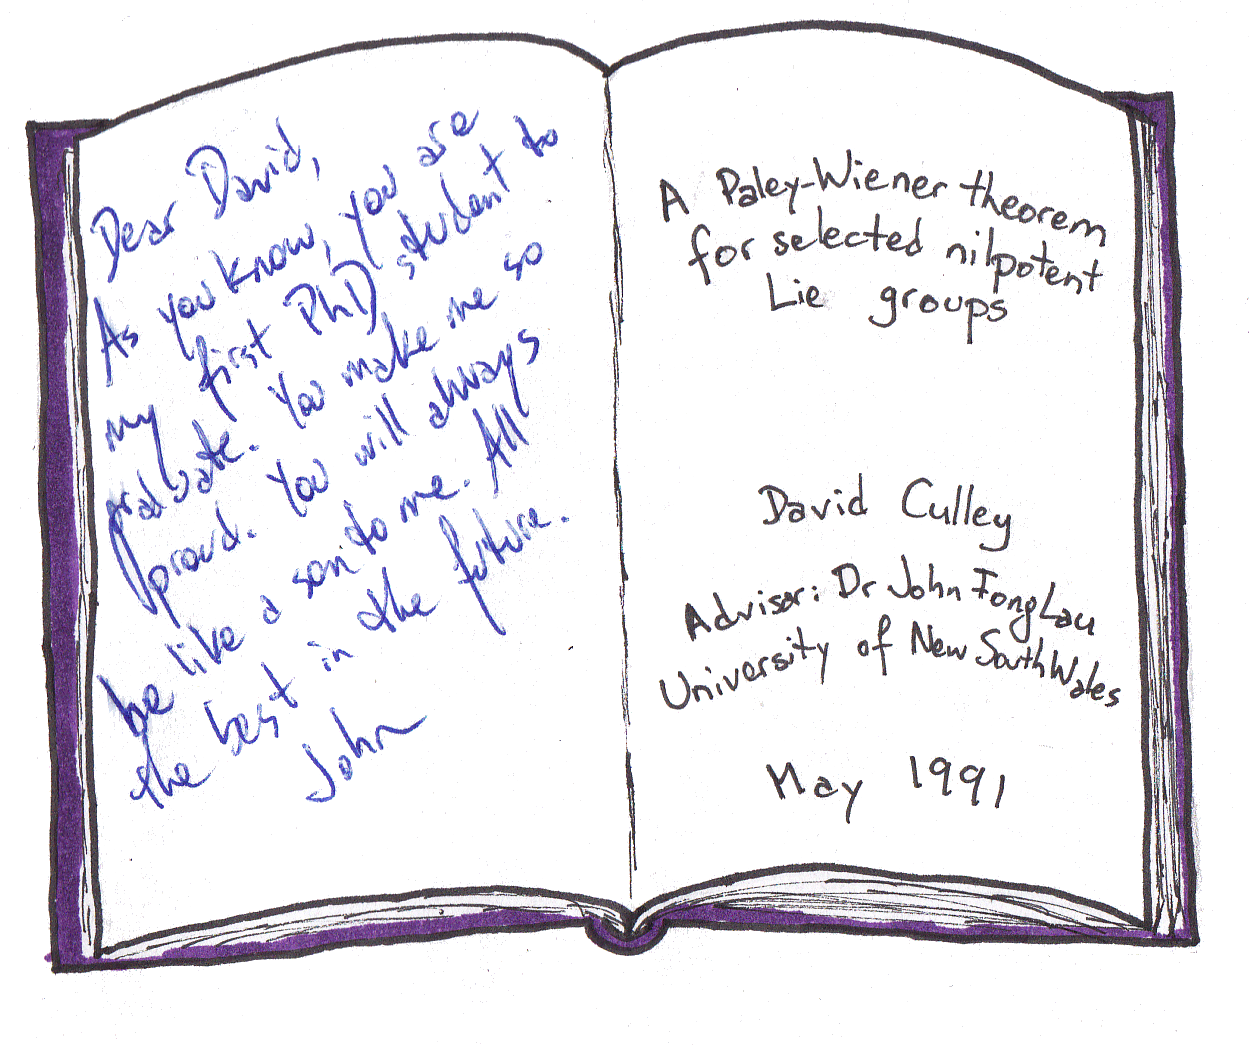 Dear David,
As you know, you are
my first PhD student to
graduate. You make me so
proud. You will always
be like a son to me. All
the best in the future.
John
A Paley-Wiener theorem
for selected nilpotent
Lie groups
David Culley
Advisor: Dr John Fong Lau
University of New South Wales
May 1991